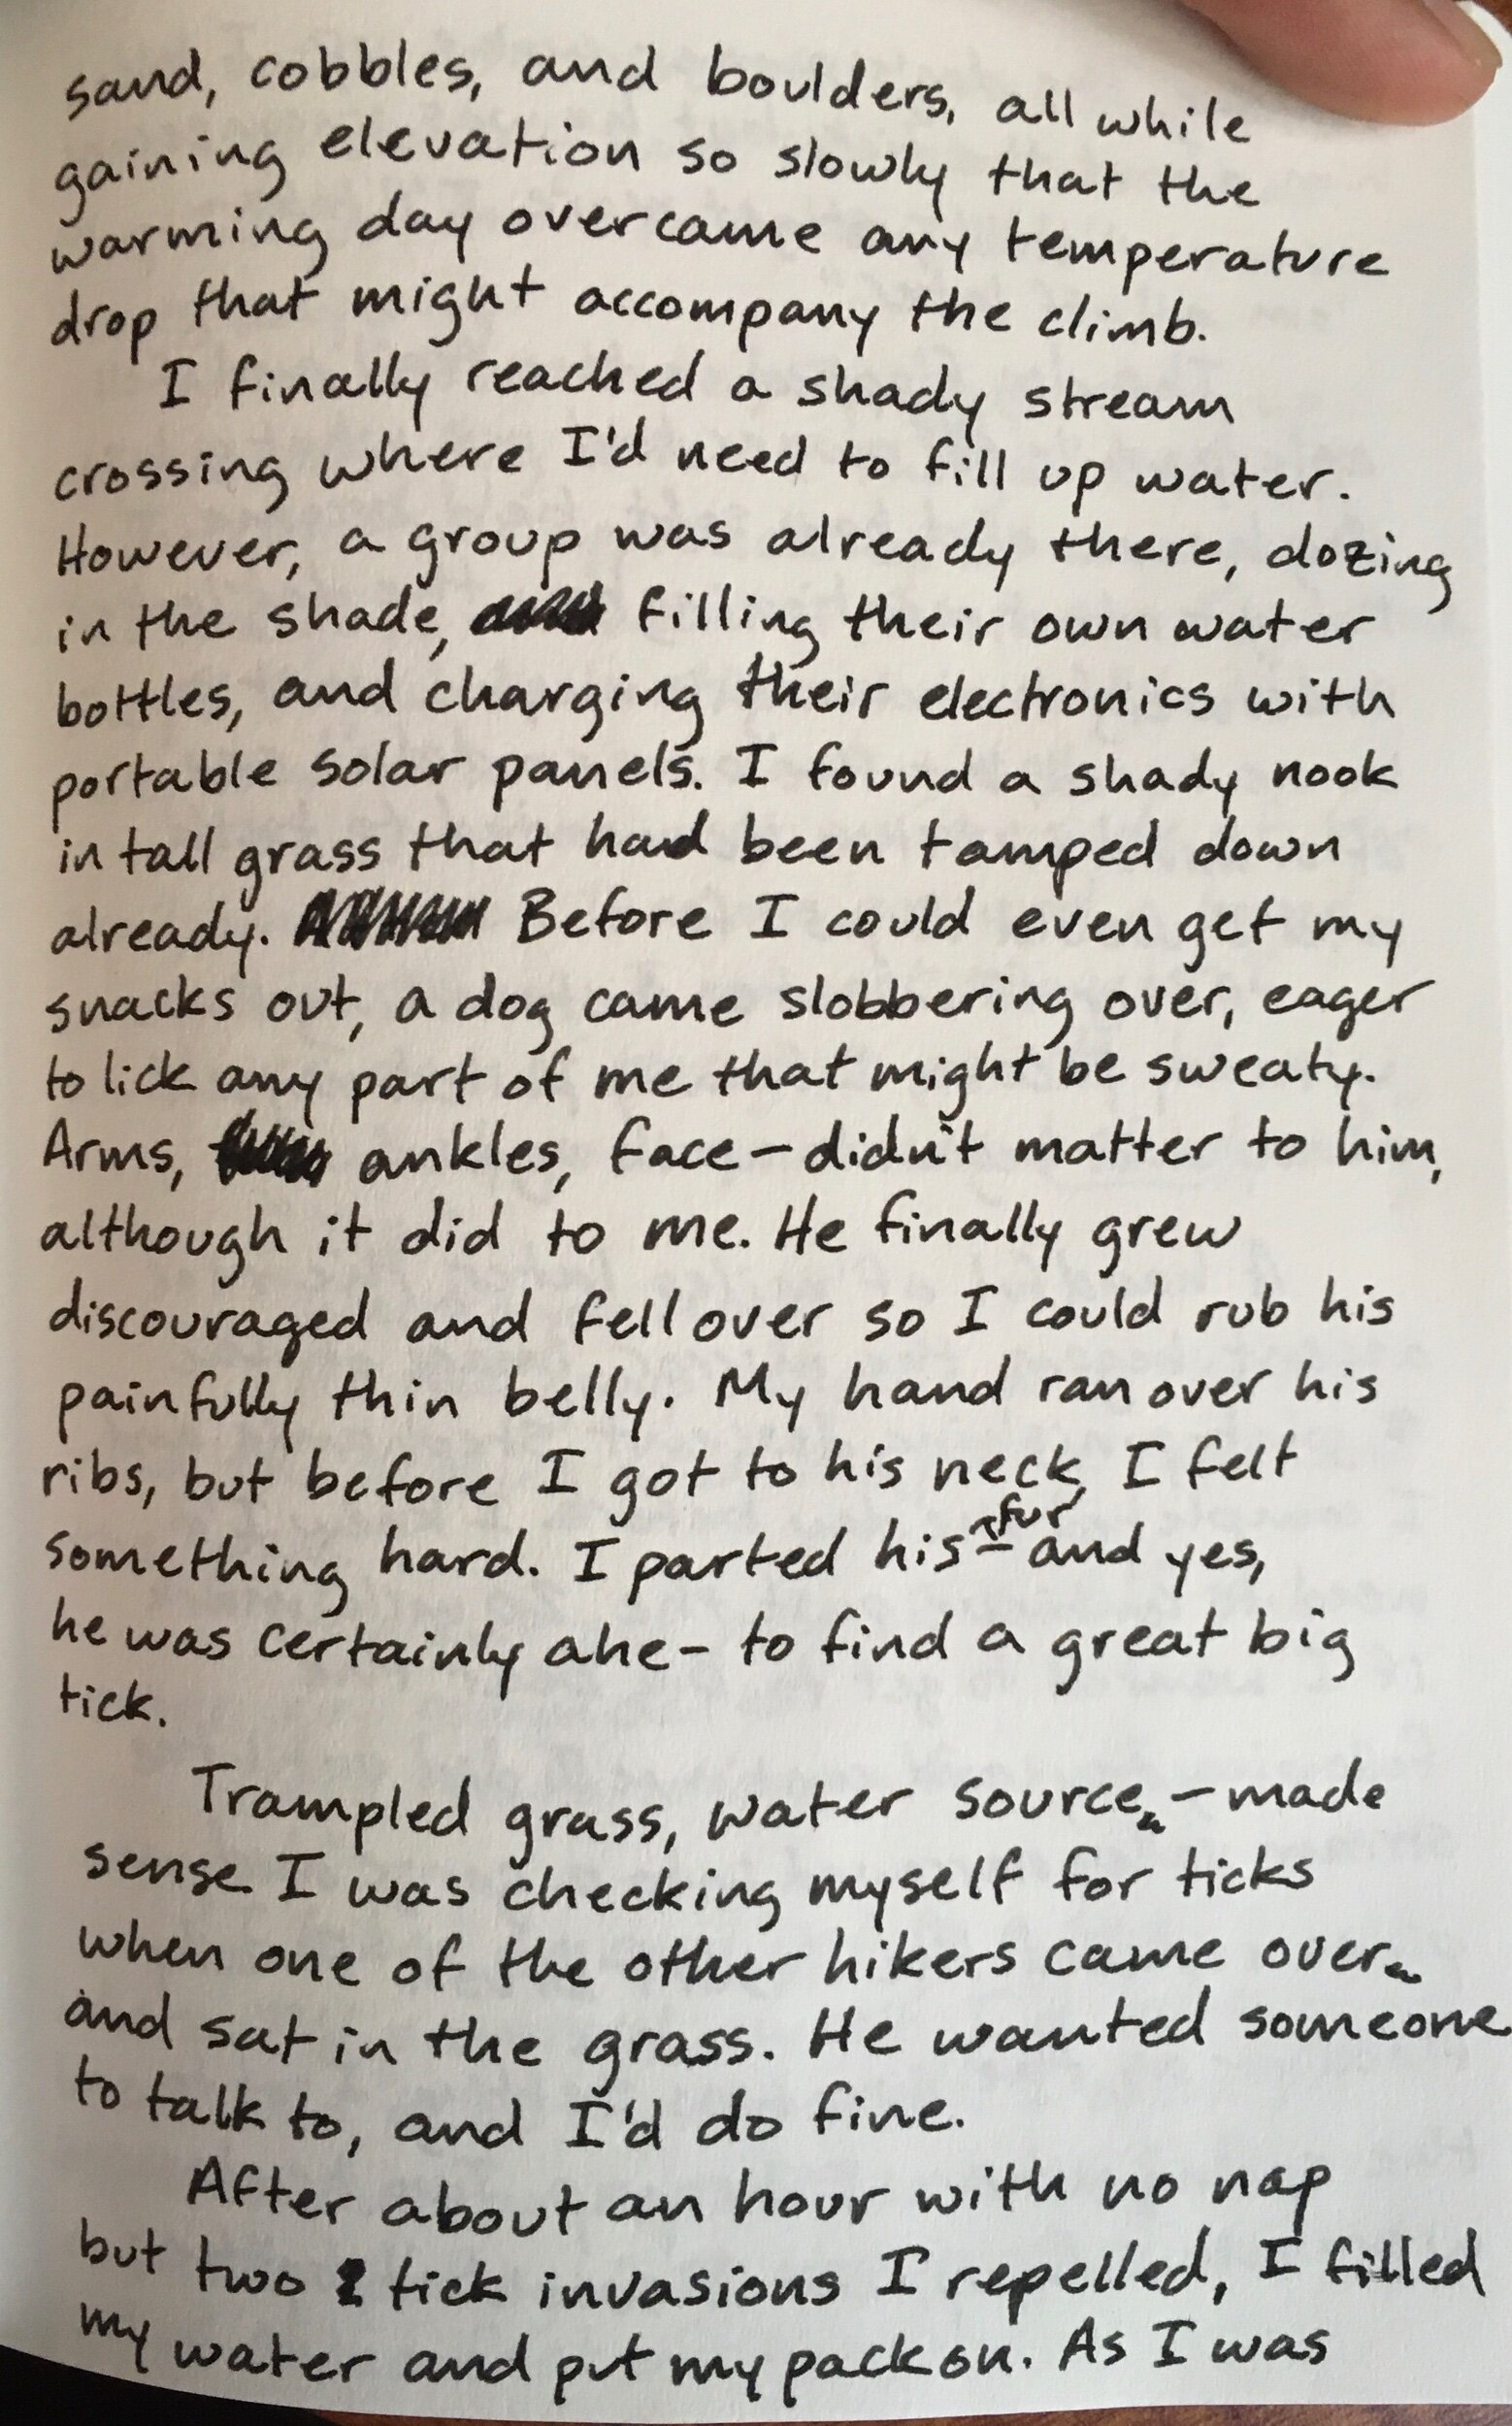 sand, cobbles, and boulders, all while
gaining elevation so slowly that the
warming day overcame any temperature
drop that might accompany the climb.
I finally reached a shady stream
crossing where I'd need to fill up water.
However, a group was already there, dozing
in the shade, filling their own water
bottles, and charging their electronics with
portable solar panels. I found a shady nook
in tall grass that had been tamped down
already. Before I could even get my
snacks out, a dog came slobbering over, eager
to lick any part of me that might be sweaty.
Arms, ankles, face - didn't matter to him,
although it did to me. He finally grew
discouraged and fell over so I could rub his
painfully thin belly. My hand ran over his
ribs, but before I got to his neck, I felt
something hard. I parted his fur - and yes,
he was certainly a he - to find a great big
tick.
Trampled grass, water source - made
sense I was checking myself for ticks
when one of the other hikers came over
and sat in the grass. He wanted someone
to talk to, and I'd do fine.
After about an hour with no nap
but two tick invasions I repelled, I filled
my water and put my pack on. As I was